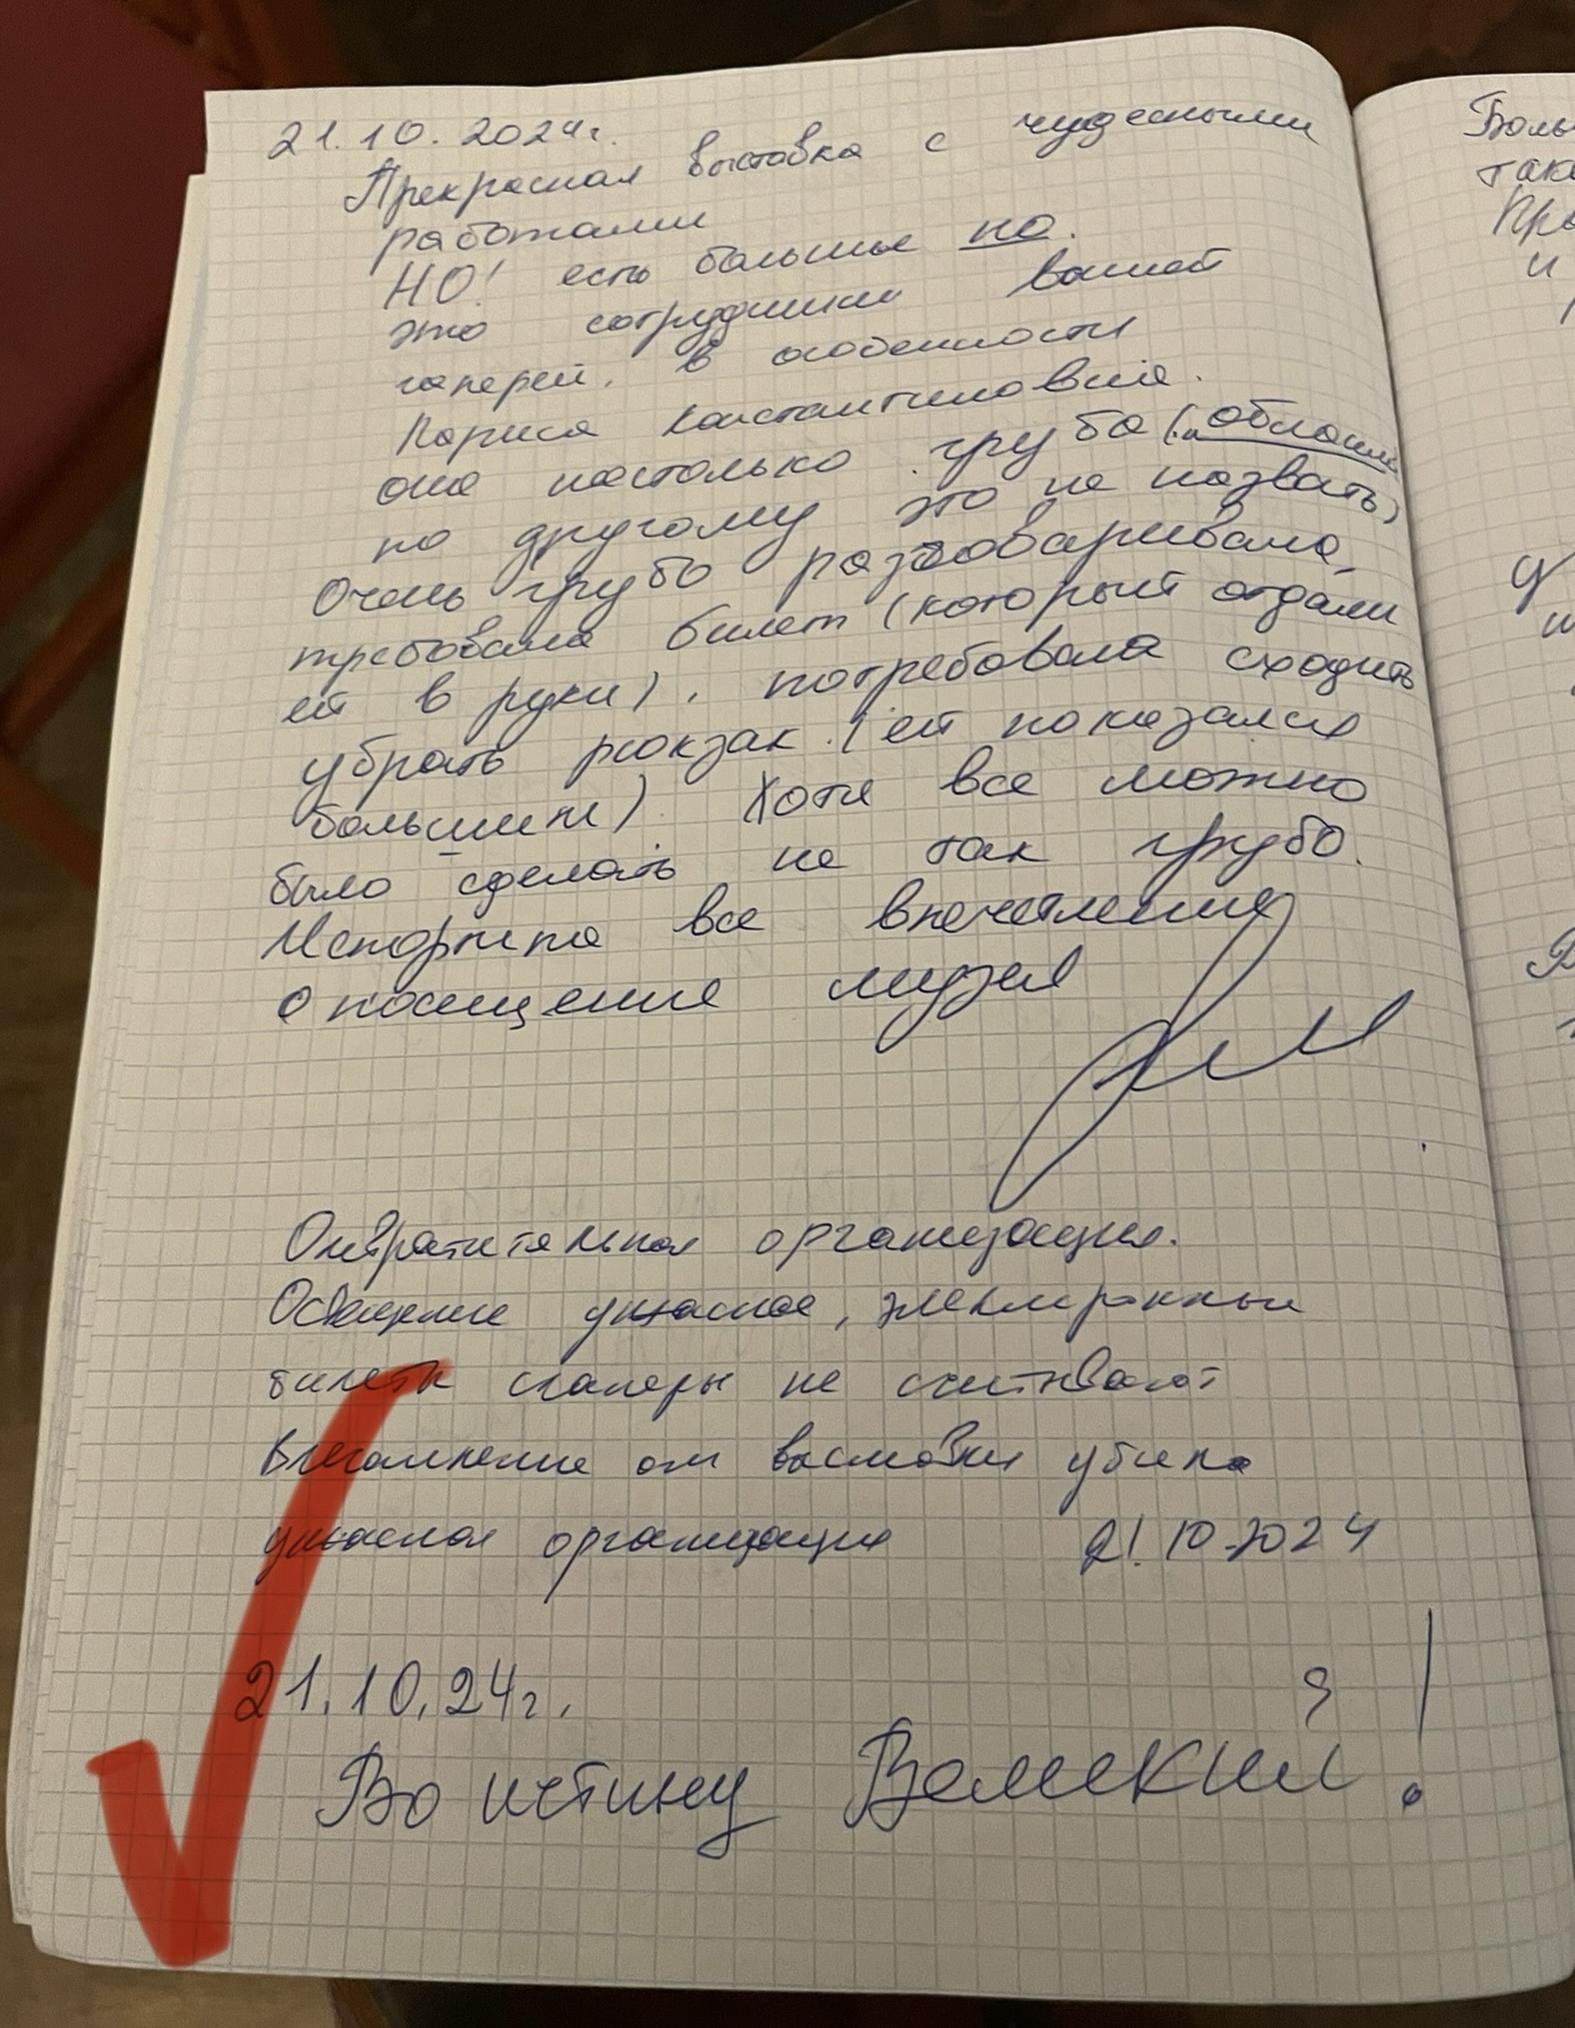 21.10.2024г.
Прекрасная выставка с чудесными
работами
НО! есть большие но.
это сотрудники вашей
галереи, в особенности
Лариса Константиновна.
она настолько груба (
по другому это не назвать)
Очень грубо разговаривала,
требовала билет (который отдали
ей в руки), потребовала сходить
убрать рюкзак (ей показался
большим). Хотя все можно
было сделать не так грубо.
Испортила все впечатление
о посещение музея
Отвратительная организация.
Освещение ужасное, электронные
билеты сканеры не считывают
Впечатление от выставки убила
ужасная организация 21.10.2024
21.10.24г.
Во истину Великий!
Боль
така
Пре
и